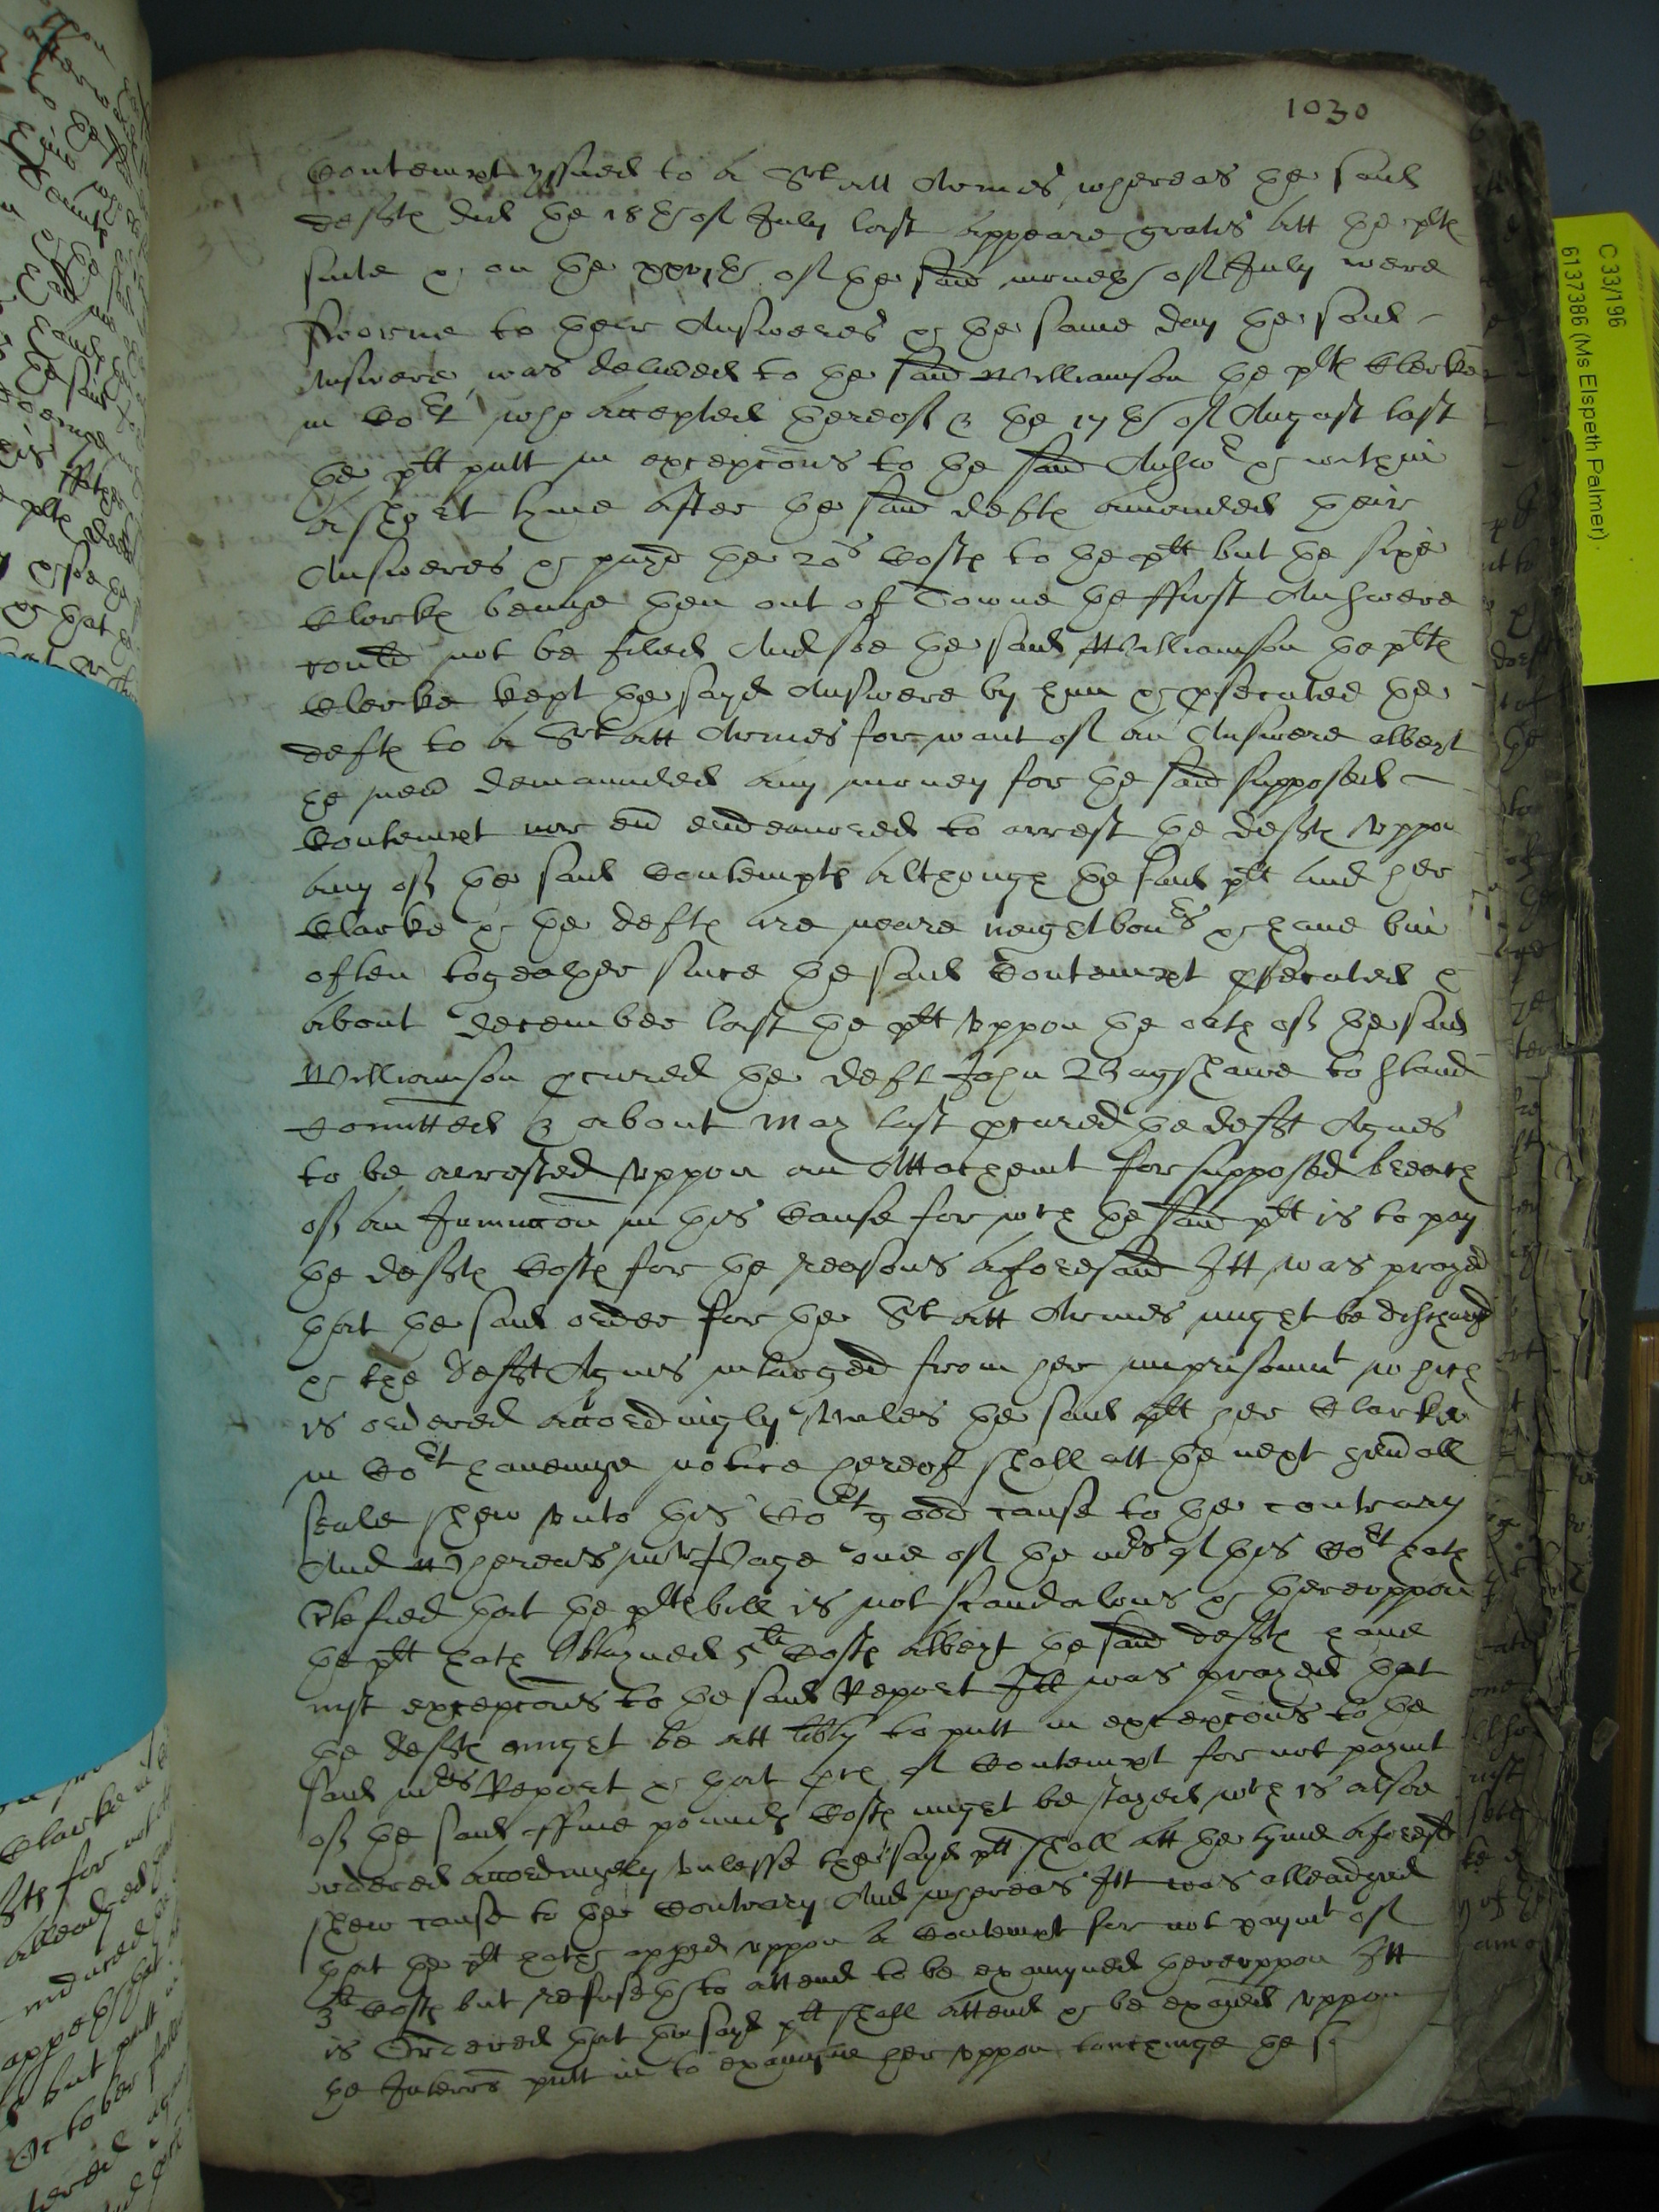 1030
Contempt yssued to a Srt att Armes whereas the said
defts did the 18th of July last appeare gratis att the plts
suite & on the xxvjth of the said moneth of July were
sworne to their Answeres & the same day the said
Answere was delivred to the said Williamson the plts Clerke
in Cort who accepted thereof & the 17th of August last
the plt putt in excepcons to the said Answr & within
a short tyme after the said defts amended their
Answeres & payd the 20s Costs to the plt but the sixe
Clerke beinge then out of Towne the ffirst Answere
could not be filed And soe the said Williamson the plts
Clerke kept the sayd Answere by him & psecuted the
defts to a Srt att Armes for want of an Answere albeyt
he nevr demaunded any money for the said supposed
Contempt nor evr endeavored to arrest the defts uppon
any of the said Contempts althoughe the said plt and her
Clarke & the defts are neare neighbours & have bin
often togeather since the said Contempt psecuted &
about December last the plt uppon the oath of the said
Williamson pcured the deft John Bagshawe to stand
Comitted & about May last pcured the deft Agnes
to be arrested uppon an Attachemt for supposed breach
of an Iniunccon in this Cause for wch the said plt is to pay
the defts Costs for the reasons aforesaid Itt was prayed
that the said order for the Srt att Armes might be dischargd
& the deft Agnes inlarged from her imprisonmt which
is ordered accordingly Unles the said plt her Clarke
in Cort haveinge notice hereof shall att the next genrall
seale shew unto this Cort good cause to the contrary
And whereas Mr Page one of the Mrs of this Cort hath
Certefied that the plts bill is not scandalous & thereuppon
the plt hath Obtayned 5li Costs albeyt the said defts have
iust excepcons to the said Report Itt was prayed that
the defts might be att libty to putt in excepcons to the
said Mrs Report & that pces of Contempt for not paymt
of the said ffive pounds Costs might be stayed wch is alsoe
ordered accordingly unlesse the sayd plt shall att the tyme aforesd
shew cause to the Contrary And whereas Itt was alleadged
that the plt hath appeed uppon a Contempt for not paymt of
3li Costs but refuseth to attend to be examyned thereuppon Itt
is Ordered that the sayd plt shall attend & be examed uppon
the Interrs putt in to examyne her uppon touchinge the s
C 33/196
6137386 (Ms Elspeth Palmer)